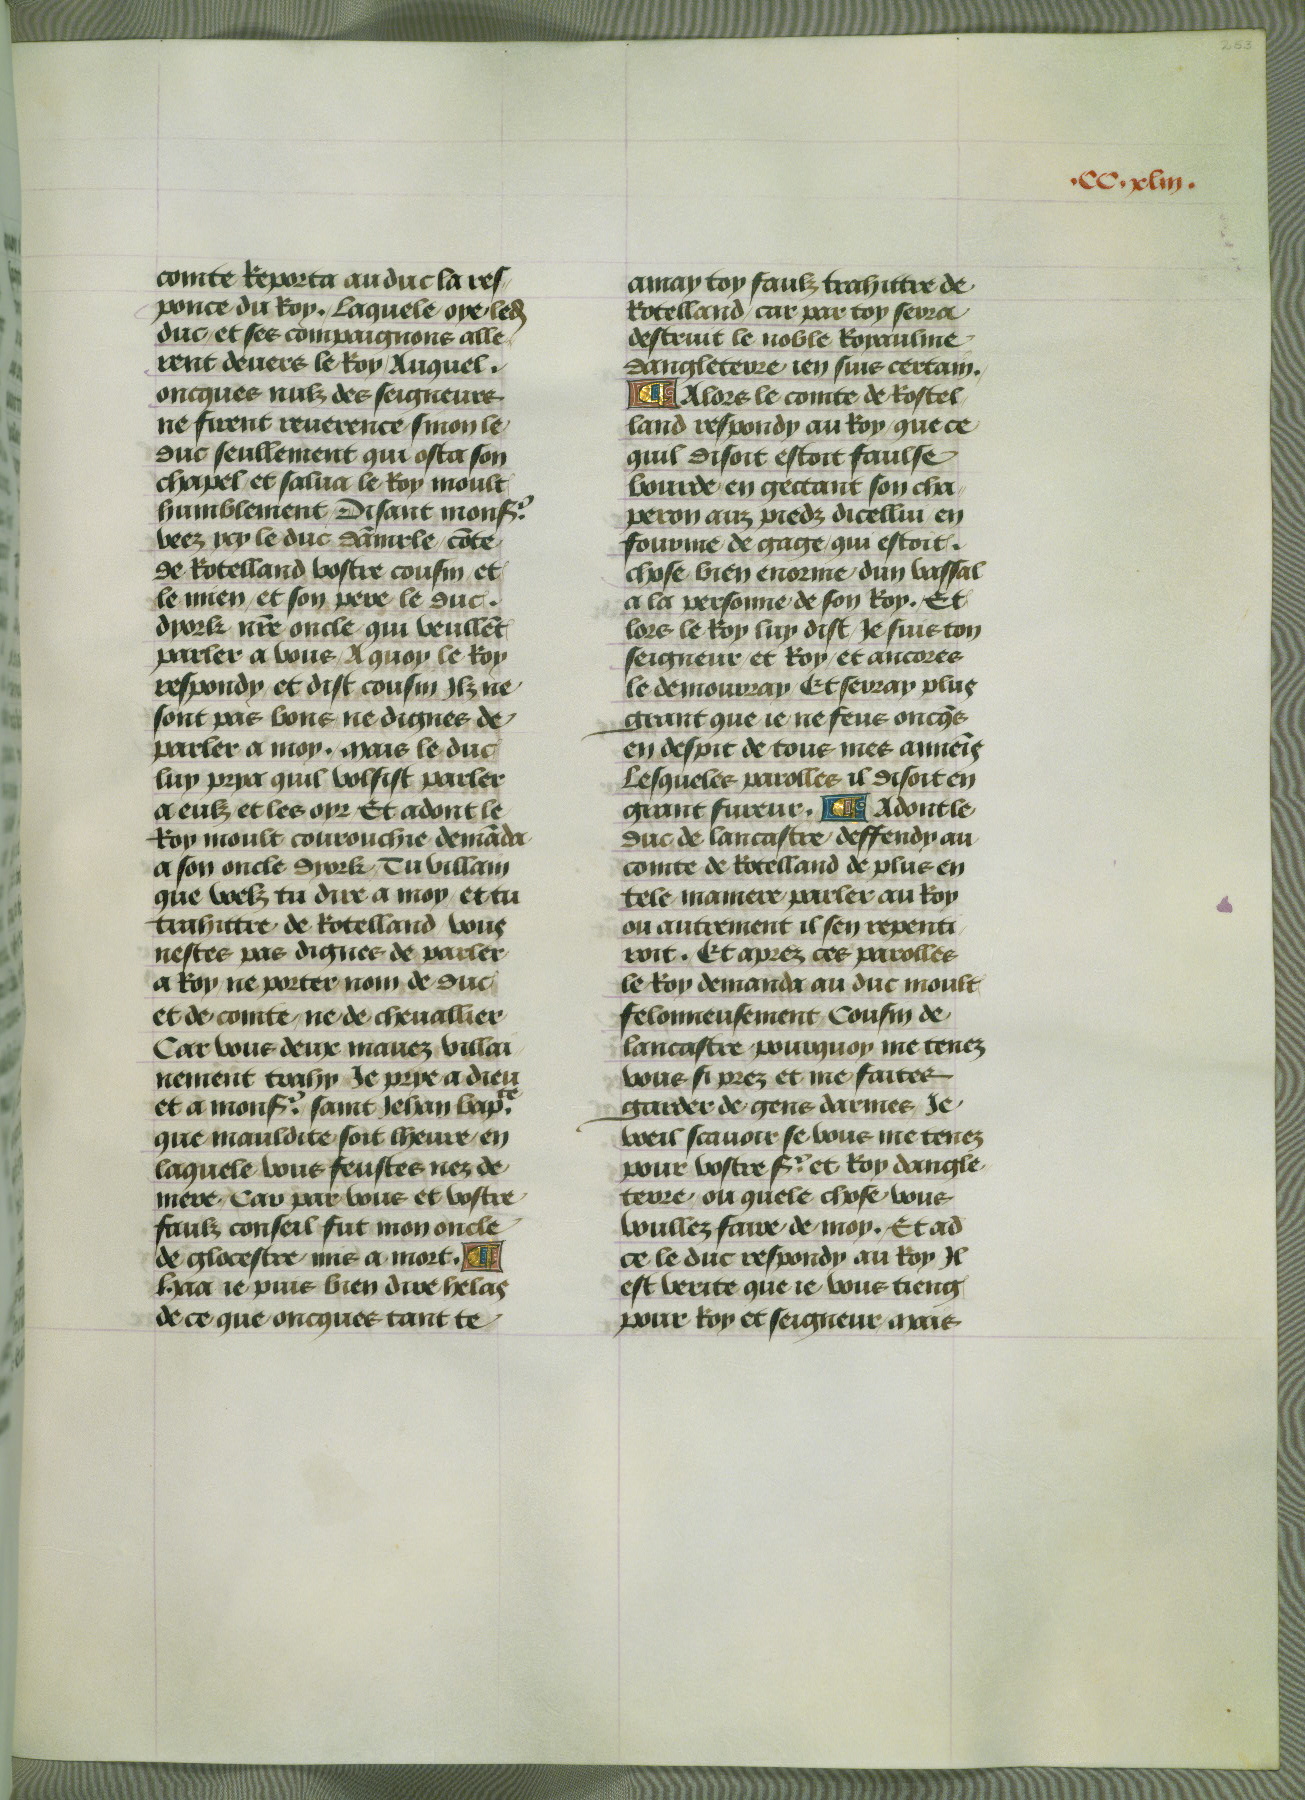 253
.CC.xliii.
comte Reporta au duc la res
ponce du Roy. Laquele oye led
duc et ses compaignons alle
rent devers le Roy Auquel.
oncques nulz des seigneurs
ne firent reverence sinon le
duc seullement qui osta son
chapel et salua le Roy moult
humblement Disant monsr.
veez ycy le duc dãmrle cõte
de Rotelland vostre cousin et
le mien et son pere le duc.
dyork nr̃e oncle qui veullẽt
parler a vous A quoy le Roy
respondy et dist cousin Ilz ne
sont pas bons ne dignes de
parler a moy. mais le duc
luy prya quil volsist parler
a eulz et les oyr Et adont le
Roy moult courouchie demãda
a son oncle dyork Tu villain
que voelz tu dire a moy et tu
trahittre de Rotelland vous
nestes pas dignes de parler
a Roy ne porter nom de duc
et de comte ne de chevallier
Car vous deux mavez villai
nement trahy Je prye a dieu
et a monsr. saint Jehan bapte.
que mauldite soit lheure en
laquele vous feustes nez de
mere Car par vous et vostre
faulz conseil fut mon oncle
de glocestre mis a mort. ¶
haa ie puis bien dire helas
de ce que oncques tant te
amay toy faulz trahittre de
Rotelland car par toy sera
destruit le noble Royaulme
dangleterre ien suis certain.
¶ Alors le comte de Rostel
land respondy au Roy que ce
quil disoit estoit faulse
bourde en gectant son cha
peron aux piedz dicellui en
fourme de gage qui estoit.
chose bien enorme dun vassal
a la personne de son Roy. Et
lors le Roy luy dist Je suis ton
seigneur et Roy et ancores
le demourray Et serray plus
grant que ie ne feus oncq̃s
en despit de tous mes annẽis
Lesqueles parolles il disoit en
grant fureur. ¶ Adont le
duc de lancastre deffendy au
comte de Rotelland de plus en
tele maniere parler au Roy
ou autrement il sen repenti
roit. Et aprez ces parolles
le Roy demanda au duc moult
felonneusement Cousin de
lancastre pourquoy me tenez
vous si prez et me faites
garder de gens darmes Je
veeil scavoir se vous me tenez
pour vostre sr. et Roy dangle
terre ou quele chose vous
voullez faire de moy. Et ad
ce le duc respondy au Roy Il
est verite que ie vous tieng
pour Roy et seigneur mais